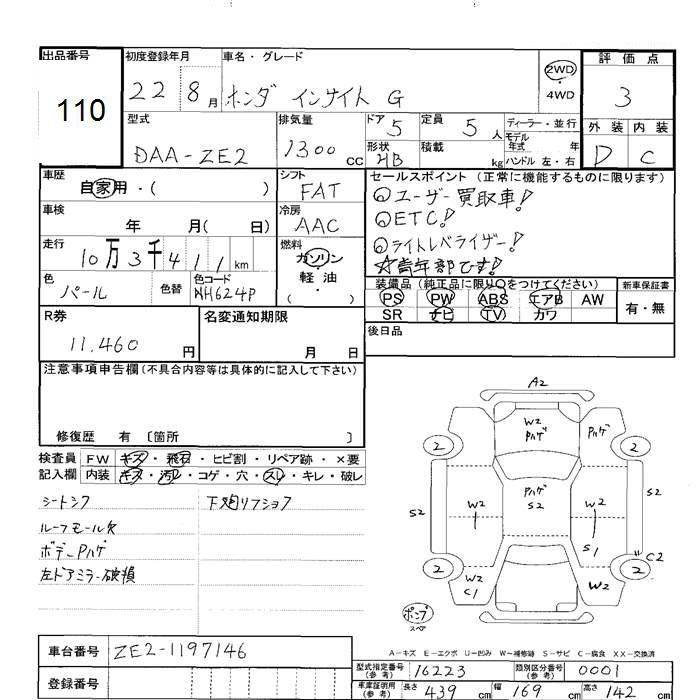 出品番号 初度登録年月 車名・グレード 評価点
110 22 8月 ホンダ インサイト G 2WD 4WD 3
型式 排気量 ドア 5 定員 5人 ディーラー・並行 外装 内装
DAA-ZE2 1300cc 形状 HB 積載 kg モデル年式 年 ハンドル 左・右 D C
車歴 自家用・( ) シフト FAT セールスポイント (正常に機能するものに限ります)
車検 年 月( 日) 冷房 AAC ユーザー買取車!
ETC!
走行 10万3千411km 燃料 ガソリン・軽油・( ) ライトレベライザー!
☆青年部です!
色 パール 色替 色コード NH624P 装備品(純正品に限り○をつけてください) 新車保証書
PS PW ABS エアB AW 有・無
SR ナビ TV カワ
R券 11,460円 名変通知期限 月 日 後日品
注意事項申告欄(不具合内容等は具体的に記入して下さい)
修復歴 有 〔箇所 〕
検査員 FW キズ・飛石・ヒビ割・リペア跡・×要
記入欄 内装 キズ・汚レ・コゲ・穴・スレ・キレ・破レ
シートシワ 下廻リフショク
ルーフモール欠
ボデーPハゲ
左ドアミラー破損
A2
W2 Pハゲ Pハゲ
2 2
S2 W2 Pハゲ S2 W2 S2
S1 C2
2 2
W2 C1 W2
ポンプ
スペア
A-キズ E-エクボ U-凹み W-補修跡 S-サビ C-腐食 XX-交換済
車台番号 ZE2-1197146
登録番号
型式指定番号(参考) 16223 類別区分番号(参考) 0001
車庫証明用(参考) 長さ 439cm 幅 169cm 高さ 142cm